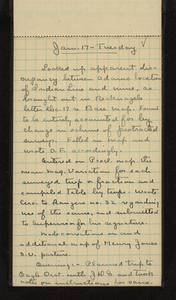 Jan. 17 - Tuesday
Looked up apparent dis-
crepancy between Adams location
of Indian Line and mine, as
brought out in Rectangle
letter Dec. 17 to Base map. Found
to be entirely accounted for by
change in scheme of protracted
surveys. Filled in map and
wrote O.K. accordingly.
Entered on Prol. map the
mean mag. variation for each
surveyed twp. or fraction and
compiled table by twps. Wrote
Circ. to Rangers no. 32 regarding
use of the same, and submitted
to Supervisor for signature.
Made correction on and
additional map of Henry Jones
S.W. pasture.
Evening - Planned trip to
Eagle Dist. with J.K.D. and took
note on instructions for same.